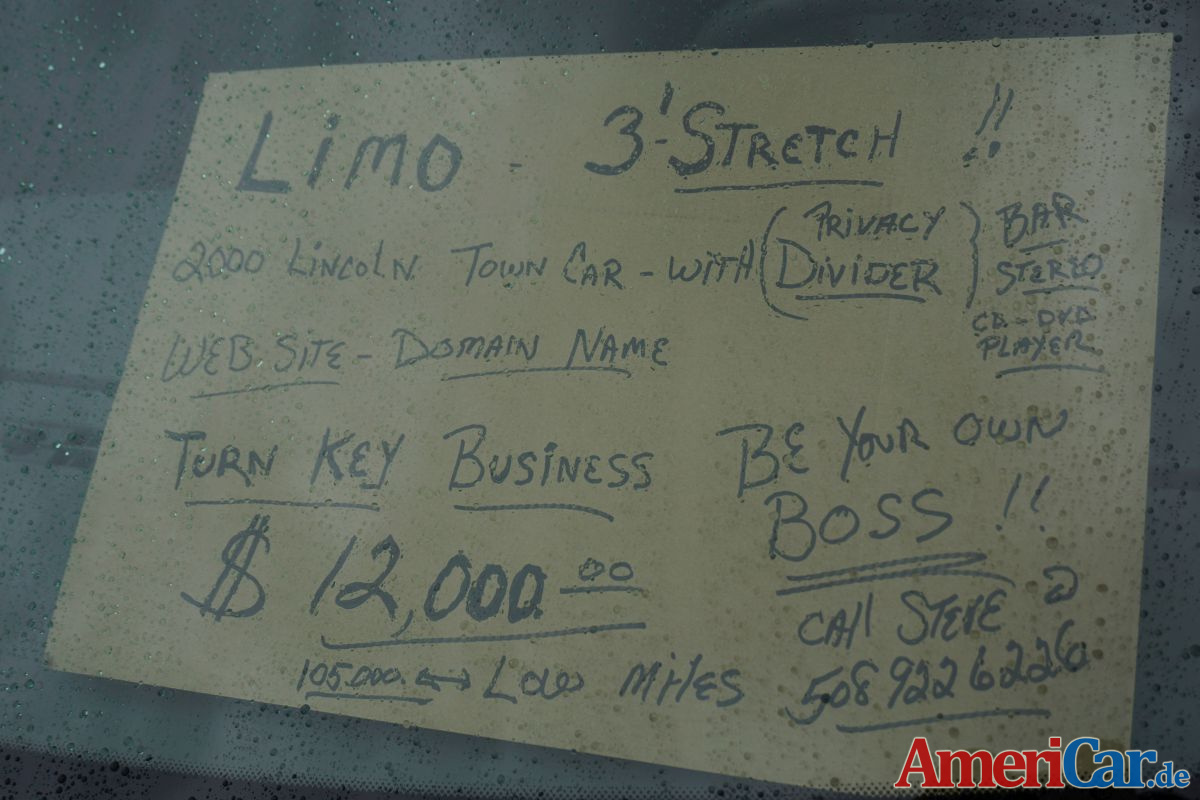 LIMO - 3'-STRETCH !!
2000 LINCOLN TOWN CAR - WITH (PRIVACY DIVIDER) BAR
STEREO
CD-DVD
PLAYER
WEB SITE - DOMAIN NAME
TURN KEY BUSINESS
BE YOUR OWN
BOSS !!
$ 12,000.00
CALL STEVE @
508 922 6226
105.000. ↔ LOW MILES
AmeriCar.de